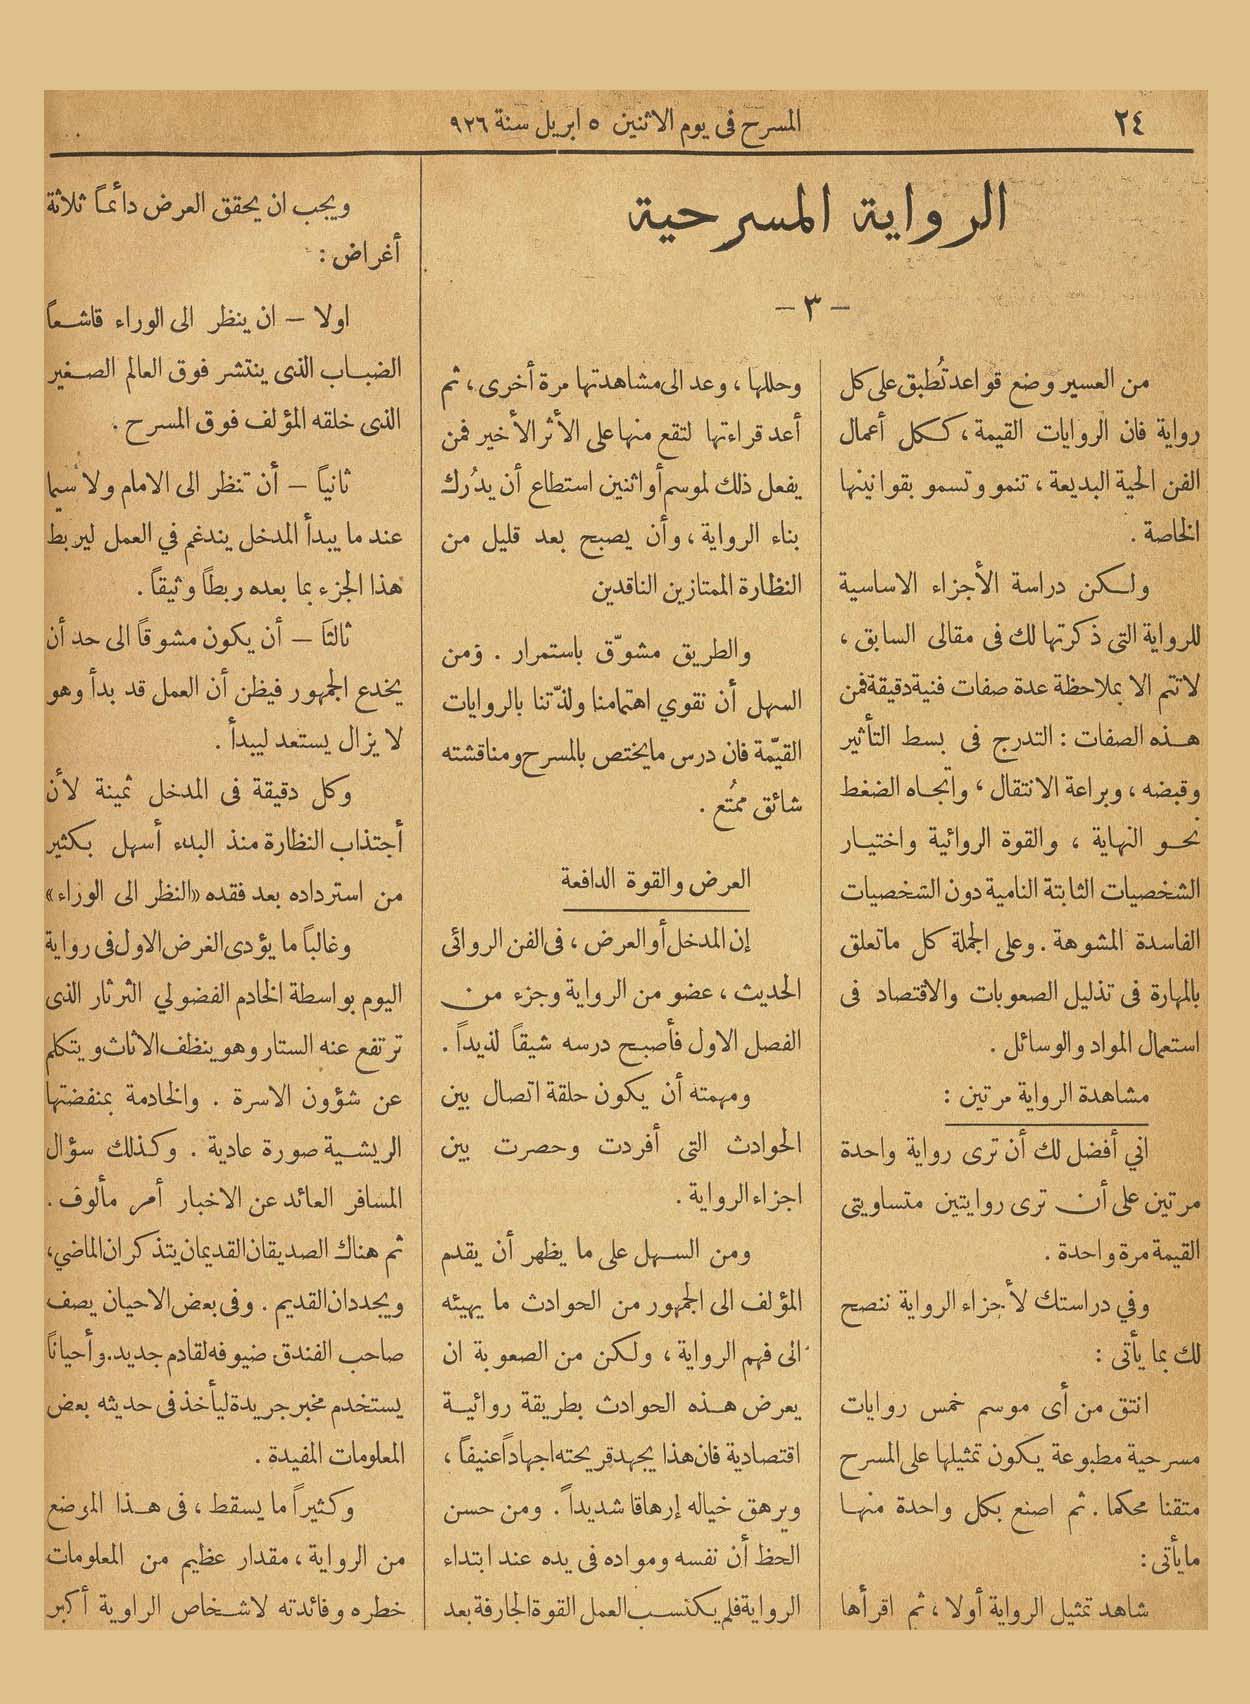 ٢٤
المسرح فى يوم الاثنين ٥ ابريل سنة ٩٢٦
الرواية المسرحية
— ٣ —
من العسير وضع قواعد تُطبق على كل
رواية فان الروايات القيمة ، ككل أعمال
الفن الحية البديعة ، تنمو وتسمو بقوانينها
الخاصة .
ولكن دراسة الأجزاء الاساسية
للرواية التى ذكرتها لك فى مقالى السابق ،
لا تتم الا بملاحظة عدة صفات فنية دقيقة فمن
هذه الصفات : التدرج فى بسط التأثير
وقبضه ، وبراعة الانتقال ، واتجاه الضغط
نحو النهاية ، والقوة الروائية واختيار
الشخصيات الثابتة النامية دون الشخصيات
الفاسدة المشوهة . وعلى الجملة كل ماتعلق
بالمهارة فى تذليل الصعوبات والاقتصاد فى
استعمال المواد والوسائل .
مشاهدة الرواية مرتين :
اني أفضل لك أن ترى رواية واحدة
مرتين على أن ترى روايتين متساويتى
القيمة مرة واحدة .
وفي دراستك لأجزاء الرواية ننصح
لك بما يأتى :
انتق من أى موسم خمس روايات
مسرحية مطبوعة يكون تمثيلها على المسرح
متقنا محكما . ثم اصنع بكل واحدة منها
مايأتى :
شاهد تمثيل الرواية أولا ، ثم اقرأها
وحللها ، وعد الى مشاهدتها مرة أخرى ، ثم
أعد قراءتها لتقع منها على الأثر الأخير فمن
يفعل ذلك لموسم أو اثنين استطاع أن يدُرك
بناء الرواية ، وأن يصبح بعد قليل من
النظارة الممتازين الناقدين
والطريق مشوّق باستمرار . ومن
السهل أن نقوي اهتمامنا ولذّتنا بالروايات
القيّمة فان درس مايختص بالمسرح ومناقشته
شائق ممُتع .
العرض والقوة الدافعة
إن المدخل أو العرض ، فى الفن الروائى
الحديث ، عضو من الرواية وجزء من
الفصل الاول فأصبح درسه شيقاً لذيذاً .
ومهمته أن يكون حلقة اتصال بين
الحوادث التى أفردت وحصرت بين
اجزاء الرواية .
ومن السهل على ما يظهر أن يقدم
المؤلف الى الجمهور من الحوادث ما يهيئه
الى فهم الرواية ، ولكن من الصعوبة ان
يعرض هذه الحوادث بطريقة روائية
اقتصادية فان هذا يجهد قريحته اجهاداً عنيفاً ،
ويرهق خياله إرهاقا شديداً . ومن حسن
الحظ أن نفسه ومواده فى يده عند ابتداء
الرواية فلم يكتسب العمل القوة الجارفة بعد
ويجب ان يحقق العرض دائماً ثلاثة
أغراض :
اولا — ان ينظر الى الوراء قاشعاً
الضباب الذى ينتشر فوق العالم الصغير
الذى خلقه المؤلف فوق المسرح .
ثانياً — أن تنظر الى الامام ولا سيما
عند ما يبدأ المدخل يندغم في العمل ليربط
هذا الجزء بما بعده ربطاً وثيقاً .
ثالثاً — أن يكون مشوقاً الى حد أن
يخدع الجمهور فيظن أن العمل قد بدأ وهو
لا يزال يستعد ليبدأ .
وكل دقيقة فى المدخل ثمينة لأن
أجتذاب النظارة منذ البدء أسهل بكثير
من استرداده بعد فقده «النظر الى الوراء»
وغالباً ما يؤدى الغرض الاول فى رواية
اليوم بواسطة الخادم الفضولي الثرثار الذى
ترتفع عنه الستار وهو ينظف الاثاث ويتكلم
عن شؤون الاسرة . والخادمة بمنفضتها
الريشية صورة عادية . وكذلك سؤال
المسافر العائد عن الاخبار أمر مألوف .
ثم هناك الصديقان القديمان يتذكران الماضي،
ويجددان القديم . وفى بعض الاحيان يصف
صاحب الفندق ضيوفه لقادم جديد. وأحياناً
يستخدم مخبر جريدة ليأخذ فى حديثه بعض
المعلومات المفيدة .
وكثيراً ما يسقط ، فى هذا الموضع
من الرواية ، مقدار عظيم من المعلومات
خطره وفائدته لاشخاص الراوية أكبر